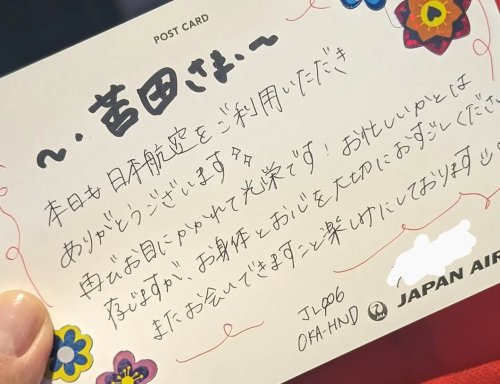 POST CARD
〜・苫田さま・〜
本日も日本航空をご利用いただき
ありがとうございます
再びお目にかかれて光栄です！お忙しいかとは
存じますが、お身体とお心を大切におすごしくださ
またお会いできますこと楽しみにしております
JL906
OKA-HND
JAL
JAPAN AIR